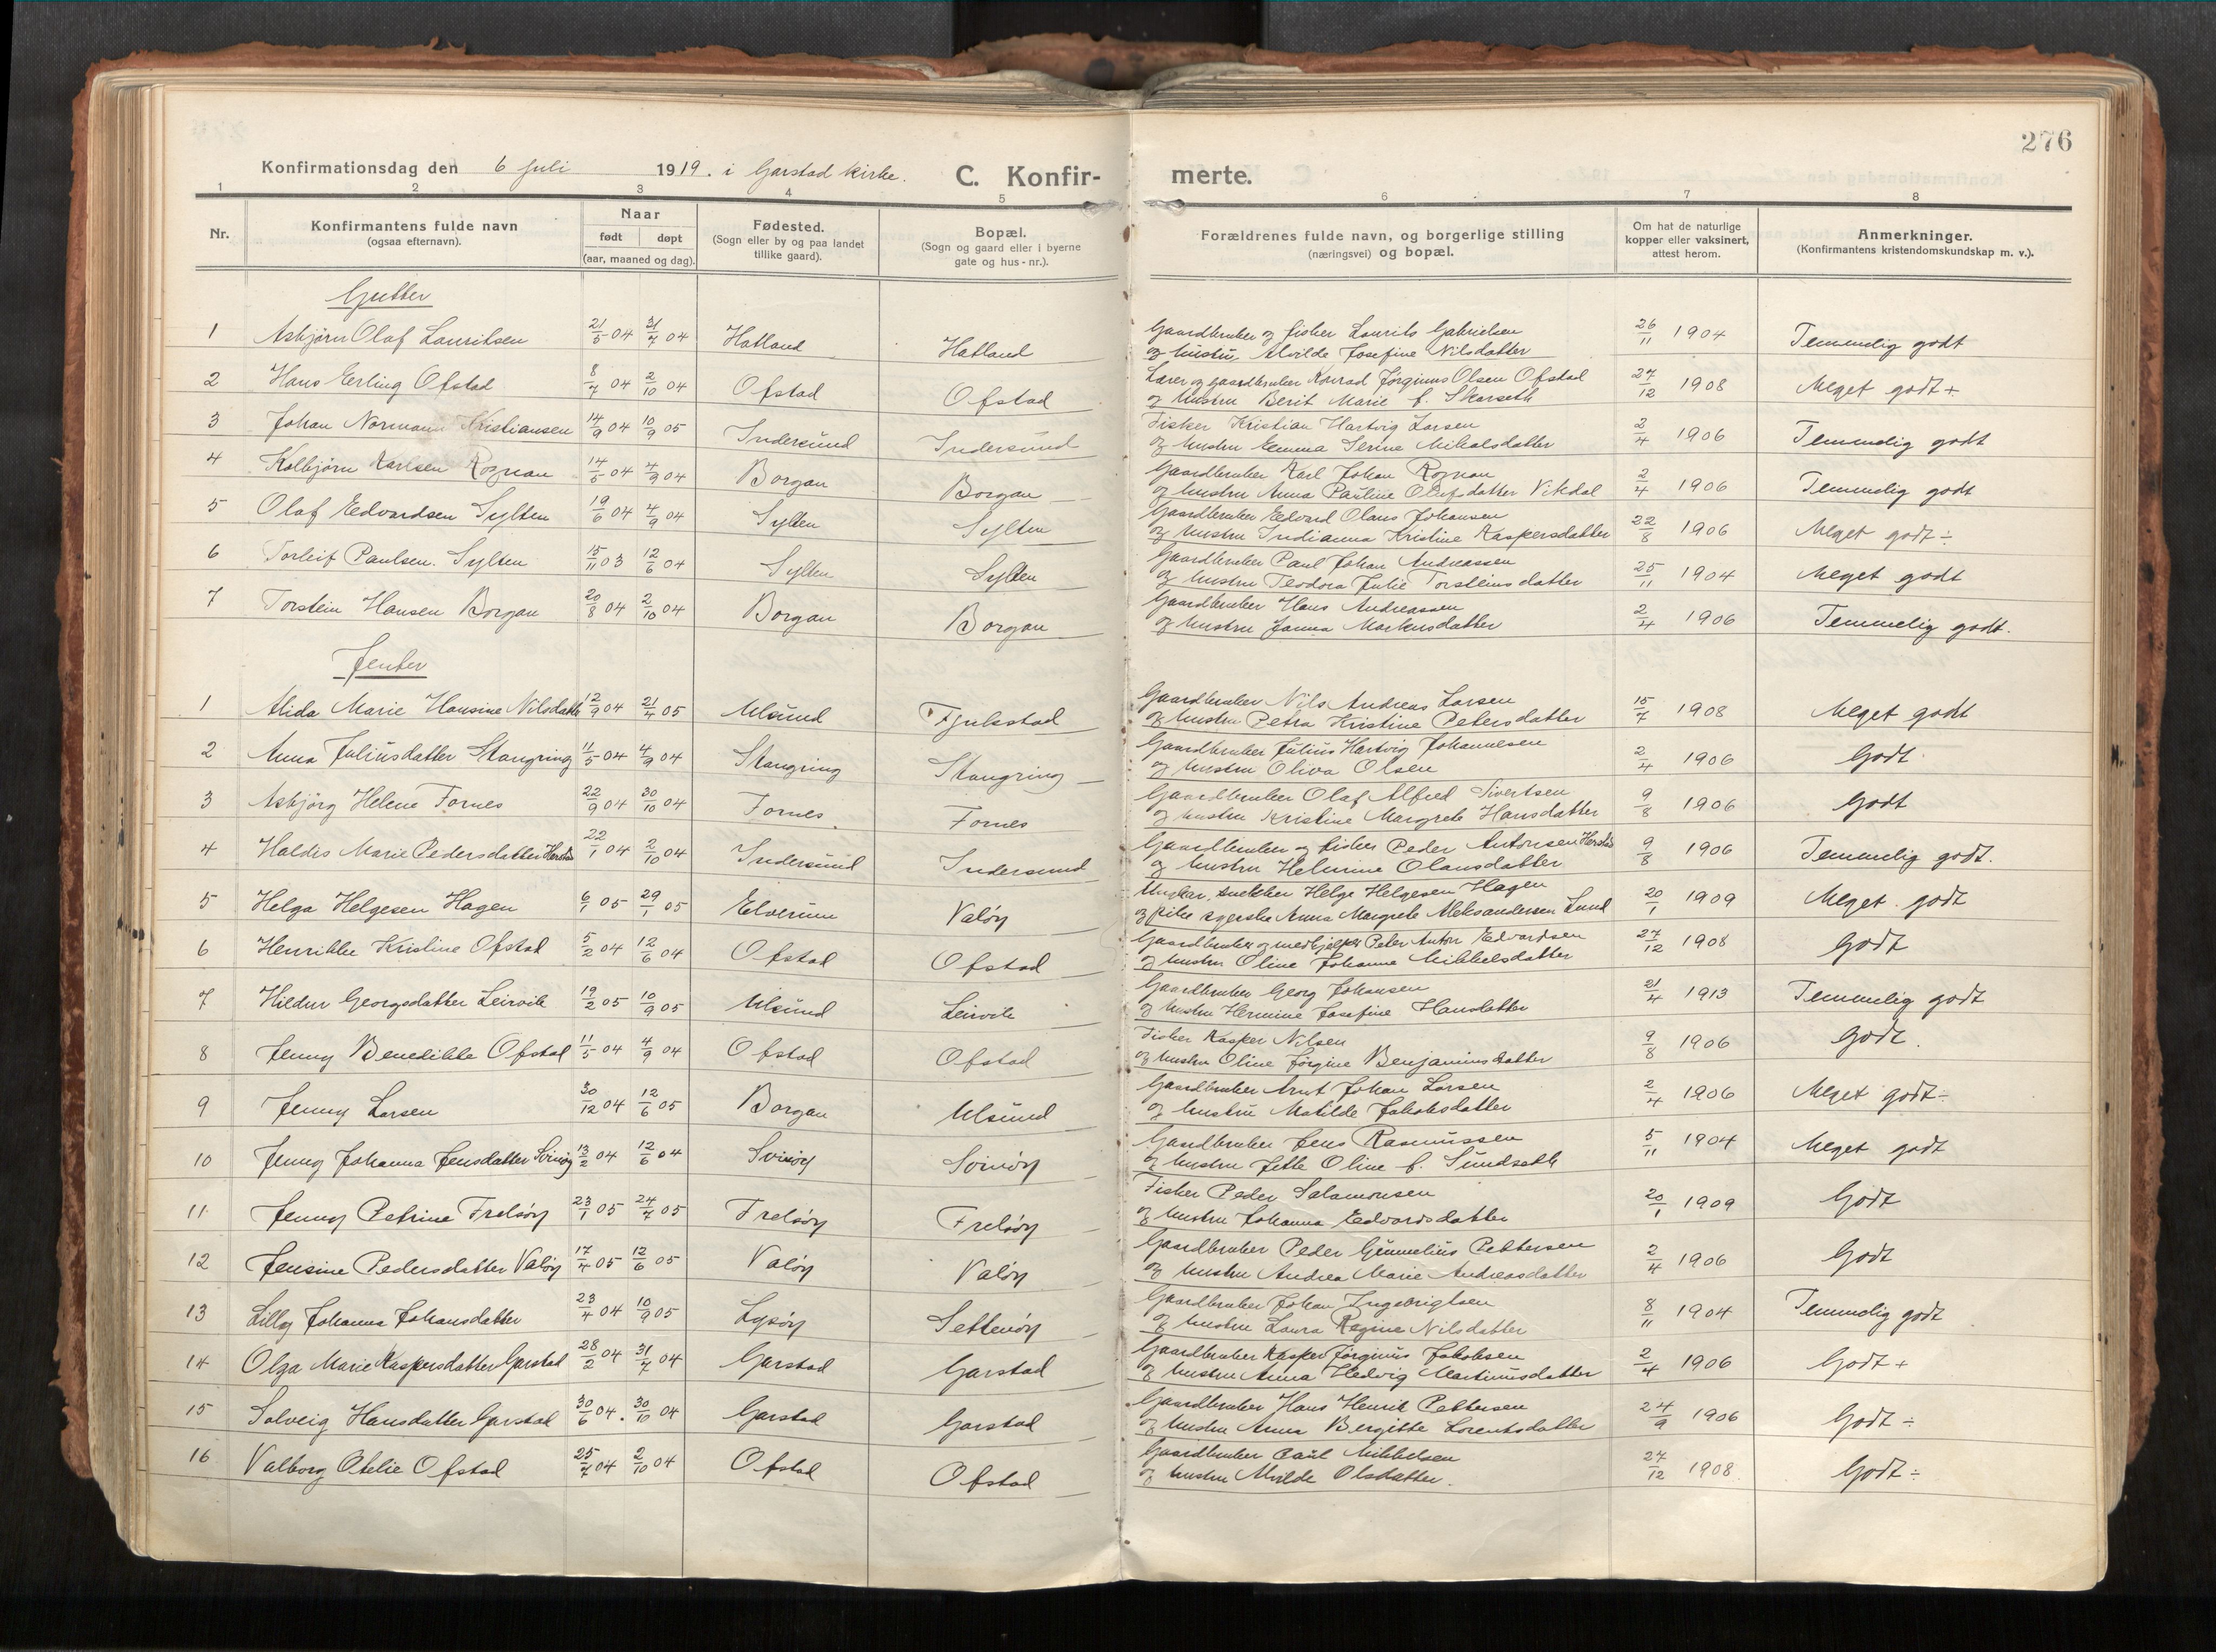 276
Konfirmationsdag den 6 Juli 1919. i Garstad kirke. C. Konfir- merte.
1 2 3 4 5 6 7 8
Nr.
Konfirmantens fulde navn
(ogsaa efternavn).
Naar
født døpt
(aar, maaned og dag).
Fødested.
(Sogn eller by og paa landet
tillike gaard).
Bopæl.
(Sogn og gaard eller i byerne
gate og hus-nr.).
Forældrenes fulde navn, og borgerlige stilling
(næringsvei) og bopæl.
Om hat de naturlige
kopper eller vaksinert,
attest herom.
Anmerkninger.
(Konfirmantens kristendomskundskap m. v.).
Gutter
1 Asbjørn Olaf Lauritsen 21/5 04 31/7 04 Hatland Hatland Gaardbruker og fisker Laurits Gabrielsen
og hustru Alvilde Josefine Nilsdatter 26/11 1904 Temmelig godt
2 Hans Erling Ofstad 8/7 04 2/10 04 Ofstad Ofstad Lærer og gaardbruker Konrad Jørginus Olsen Ofstad
og hustru Berit Marie f. Skarseth 27/12 1908 Meget godt +
3 Johan Normann Kristiansen 14/9 04 10/9 05 Indersund Indersund Fisker Kristian Hartvig Larsen
og hustru Emma Serine Mikalsdatter 2/4 1906 Temmelig godt
4 Kolbjørn Karlsen Rognan 14/5 04 4/9 04 Borgan Borgan Gaardbruker Karl Johan Rognan
og hustru Anna Pauline Olufsdatter Vikdal 2/4 1906 Temmelig godt
5 Olaf Edvardsen Sylten 19/6 04 4/9 04 Sylten Sylten Gaardbruker Edvard Olaus Johansen
og hustru Indianna Kristine Kaspersdatter 22/8 1906 Meget godt ÷
6 Torleif Paulsen Sylten 15/11 03 12/6 04 Sylten Sylten Gaardbruker Paul Johan Andreassen
og hustru Teodora Julie Torsteinsdatter 25/11 1904 Meget godt
7 Torstein Hansen Borgan 20/8 04 2/10 04 Borgan Borgan Gaardbruker Hans Andreassen
og hustru Janna Markusdatter 2/4 1906 Temmelig godt.
Jenter
1 Alida Marie Hansine Nilsdatter 12/9 04 21/4 05 Ulsund Fjukstad Gaardbruker Nils Andreas Larsen
og hustru Petra Kristine Petersdatter 15/7 1908 Meget godt
2 Anna Juliusdatter Stangring 11/5 04 4/9 04 Stangring Stangring Gaardbruker Julius Hartvig Johannesen
og hustru Oliva Olsen 2/4 1906 Godt
3 Asbjørg Helene Fornes 22/9 04 30/10 04 Fornes Fornes Gaardbruker Olaf Alfred Sivertsen
og hustru Kristine Margrete Hansdatter 9/8 1906 Godt
4 Haldis Marie Pedersdatter 22/1 04 2/10 04 Indersund Indersund Gaardbruker og fisker Peder Antonsen
og hustru Helmine Olausdatter 9/8 1906 Temmelig godt.
5 Helga Helgesen Hagen 6/1 05 29/1 05 Elverum Valöy Ungkar, snekker Helge Helgesen Hagen
og pike Anna Margrete Aleksandersen Lund 20/1 1909 Meget godt
6 Henrikke Kristine Ofstad 5/2 04 12/6 04 Ofstad Ofstad Gaardbruker og medhjelper Peter Anton Edvardsen
og hustru Oline Johanna Mikkelsdatter 27/12 1908 Godt
7 Hildur Georgsdatter Leirvik 19/2 05 10/9 05 Ulsund Leirvik Gaardbruker Georg Johansen
og hustru Hermine Josefine Hansdatter 21/4 1913 Temmelig godt
8 Jenny Benedikke Ofstad 11/5 04 4/9 04 Ofstad Ofstad Fisker Kasper Nilsen
og hustru Oline Jørgine Benjaminsdatter 9/8 1906 Godt.
9 Jenny Larsen 30/12 04 12/6 05 Borgan Ulsund Gaardbruker Arnt Johan Larsen
og hustru Matilde Jakobsdatter 2/4 1906 Meget godt ÷
10 Jenny Johanna Jensdatter Svinöy 13/2 04 12/6 04 Svinöy Svinöy Gaardbruker Jens Rasmussen
og hustru Jette Oline f. Sundseth 5/11 1904 Meget godt
11 Jenny Petrine Frelsöy 23/1 05 24/7 05 Frelsöy Frelsöy Fisker Peder Salamonsen
og hustru Johanna Edvardsdatter 20/1 1909 Godt
12 Jensine Pedersdatter Valöy 17/4 05 12/6 05 Valöy Valöy Gaardbruker Peder Pettersen
og hustru Andrea Marie Andreasdatter 2/4 1906 Godt
13 Lilly Johanna Johansdatter 23/4 04 10/9 05 Lysöy Settenöy Gaardbruker Johan Ingebrigtsen
og hustru Laura Regine Nilsdatter 8/11 1904 Temmelig godt
14 Olga Marie Kaspersdatter Garstad 28/2 04 31/7 04 Garstad Garstad Gaardbruker Kasper Jörginus Jakobsen
og hustru Anna Hedvig Martinusdatter 2/4 1906 Godt +
15 Solveig Hansdatter Garstad 30/6 04. 30/10 04 Garstad Garstad Gaardbruker Hans Henrik Pettersen
og hustru Anna Bergitte Lorentsdatter 24/9 1906 Godt ÷
16 Valborg Otelie Ofstad 25/7 04 2/10 04 Ofstad Ofstad Gaardbruker Paul Mikkelsen
og hustru Alvilde Olsdatter. 27/12 1908. Godt ÷